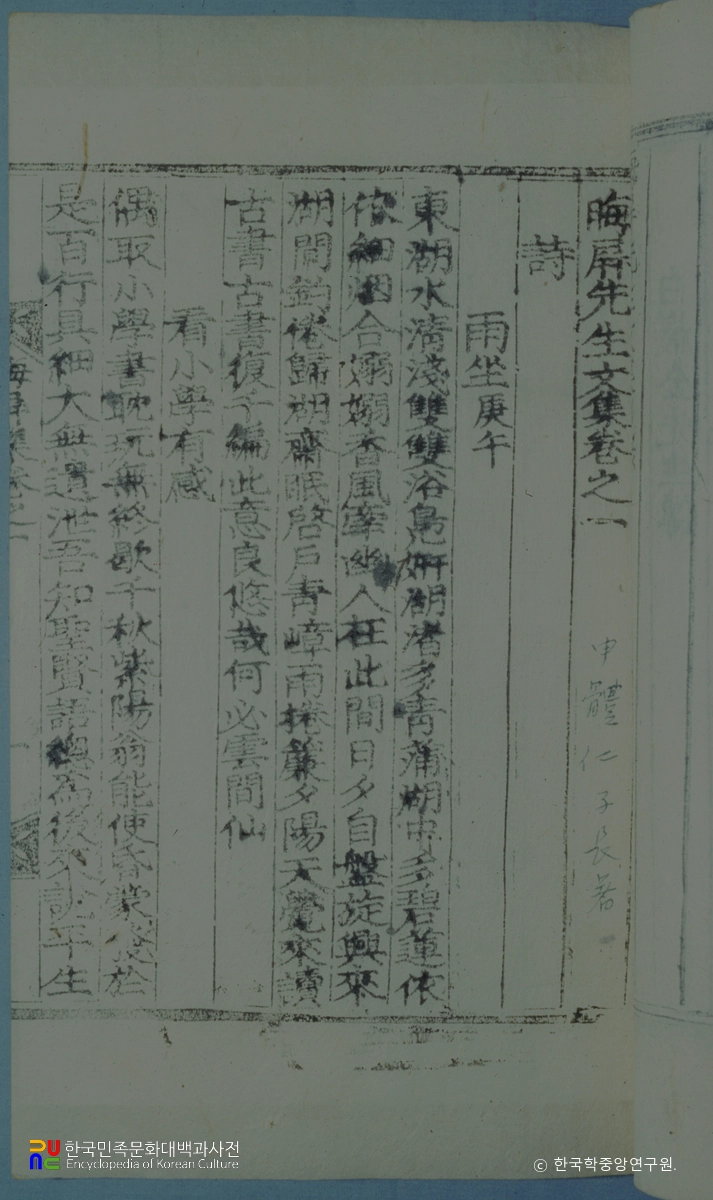 晦屛先生文集卷之一
申體仁子長著
詩
雨坐庚午
東湖水淸淺雙雙浴鳧姸湖渚多靑蒲湖中多碧蓮依
依細烟合嫋嫋香風牽幽人在此間日夕自盤旋興來
湖間釣倦歸湖齋眠啓戶靑嶂雨捲簾夕陽天覺來讀
古書古書復千編此意良悠哉何必雲間仙
看小學有感
偶取小學書耽玩無終歇千秋紫陽翁能使昏蒙發於
是百行具細大無遺泄吾知聖賢語總爲後說平生
晦屛集卷之一
한국민족문화대백과사전
Encyclopedia of Korean Culture
ⓒ 한국학중앙연구원.